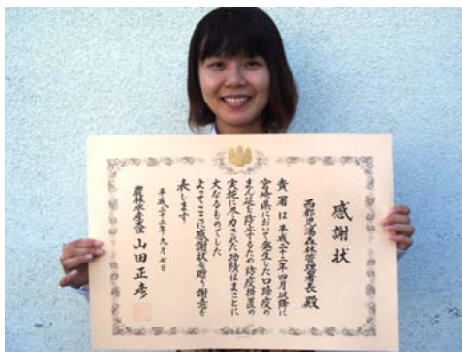 感謝状
西都児湯森林管理署長 殿
貴署は平成二十二年四月以降に
宮崎県において発生した口蹄疫の
まん延を防止するため防疫措置の
実施に尽力された功績はまことに
大なるものでした
よってここに感謝状を贈り謝意を
表します
平成二十二年九月七日
農林水産大臣 山田正彦